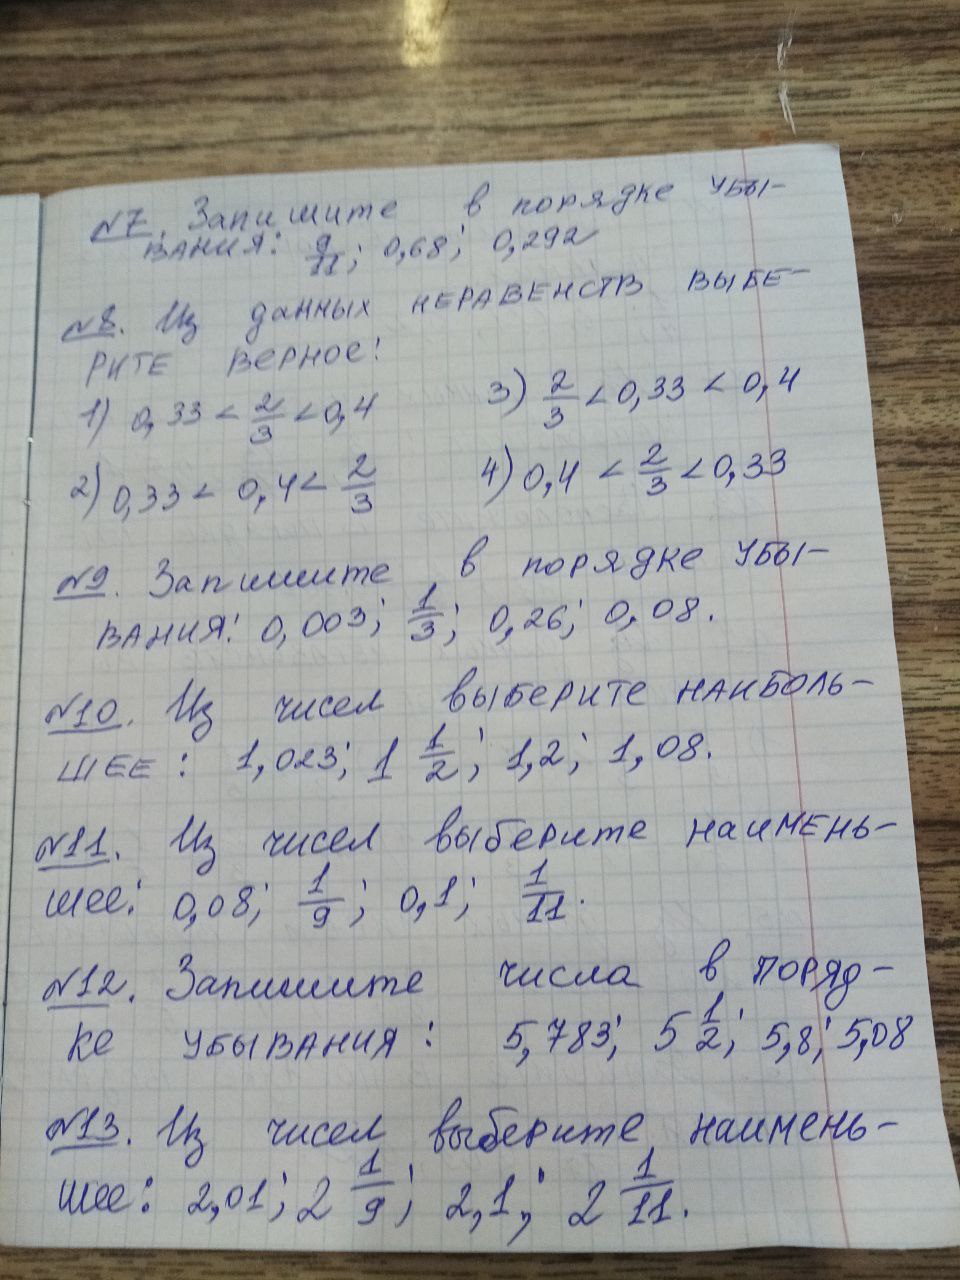 №7. Запишите в порядке убы-
вания: 9/11; 0,68; 0,292
№8. Из данных неравенств выбе-
рите верное:
1) 0,33 < 2/3 < 0,4 3) 2/3 < 0,33 < 0,4
2) 0,33 < 0,4 < 2/3 4) 0,4 < 2/3 < 0,33
№9. Запишите в порядке убы-
вания: 0,003; 1/3; 0,26; 0,08.
№10. Из чисел выберите наиболь-
шее: 1,023; 1 1/2; 1,2; 1,08.
№11. Из чисел выберите наимень-
шее: 0,08; 1/9; 0,1; 1/11.
№12. Запишите числа в поряд-
ке убывания: 5,783; 5 1/2; 5,8; 5,08
№13. Из чисел выберите наимень-
шее: 2,01; 2 1/9; 2,1; 2 1/11.